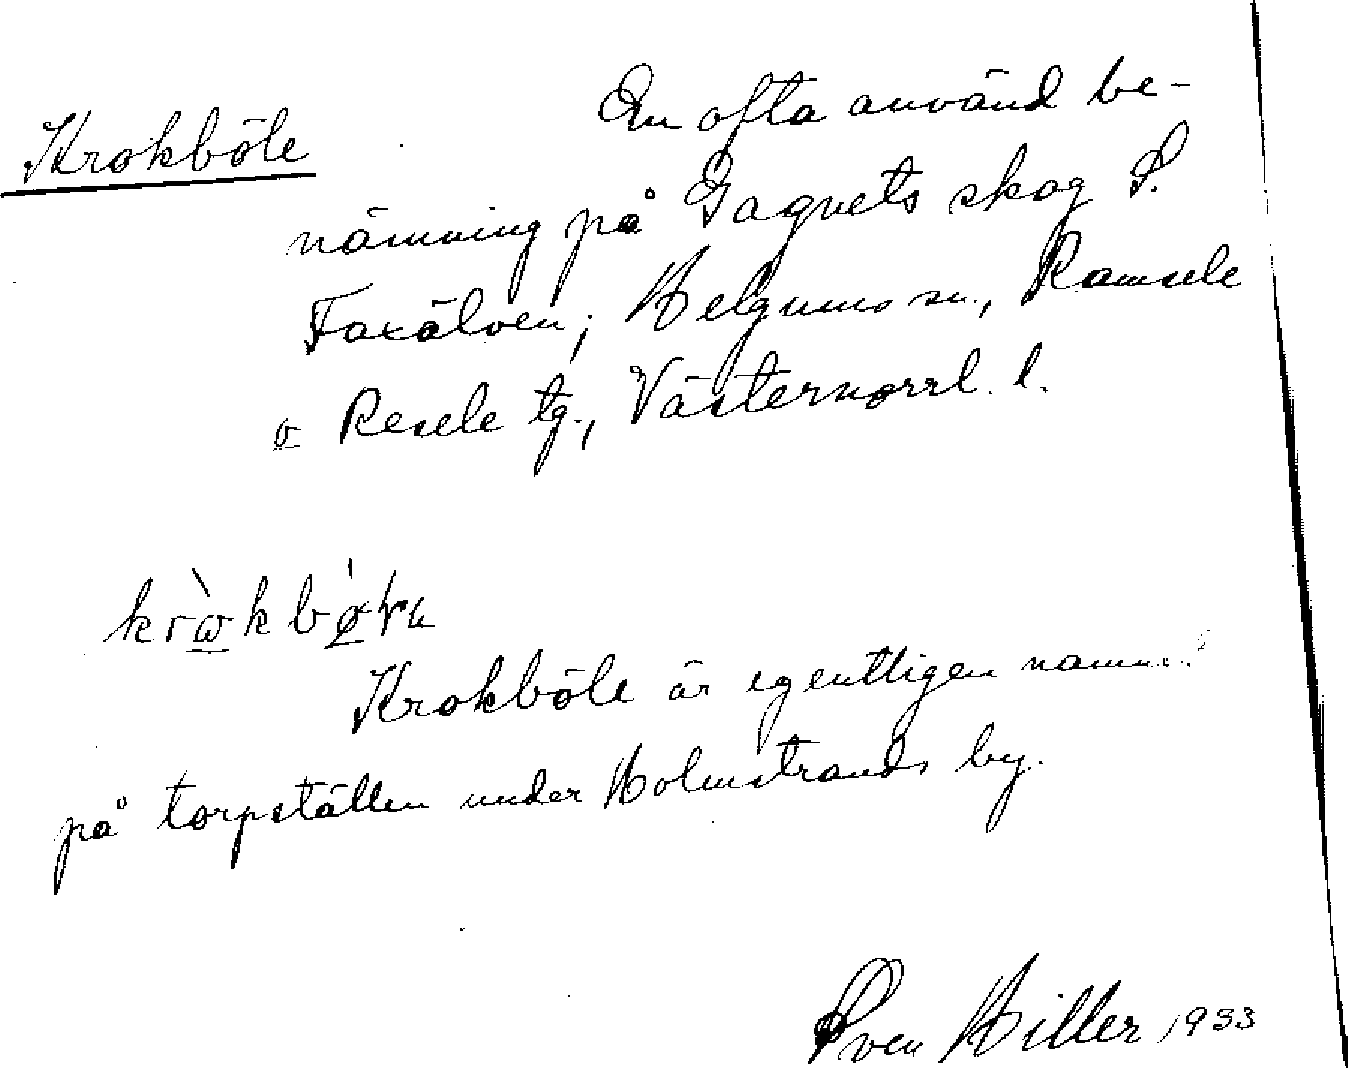 Krokböle En ofta använd be-
nämning på Gagnets skog S.
Faxälven; Helgums sn., Ramsele
o Resele tg., Västernorrl. l.
Krokböle är egentligen namnet
på torpställen under Holmstrands by.
Sven Hiller 1933